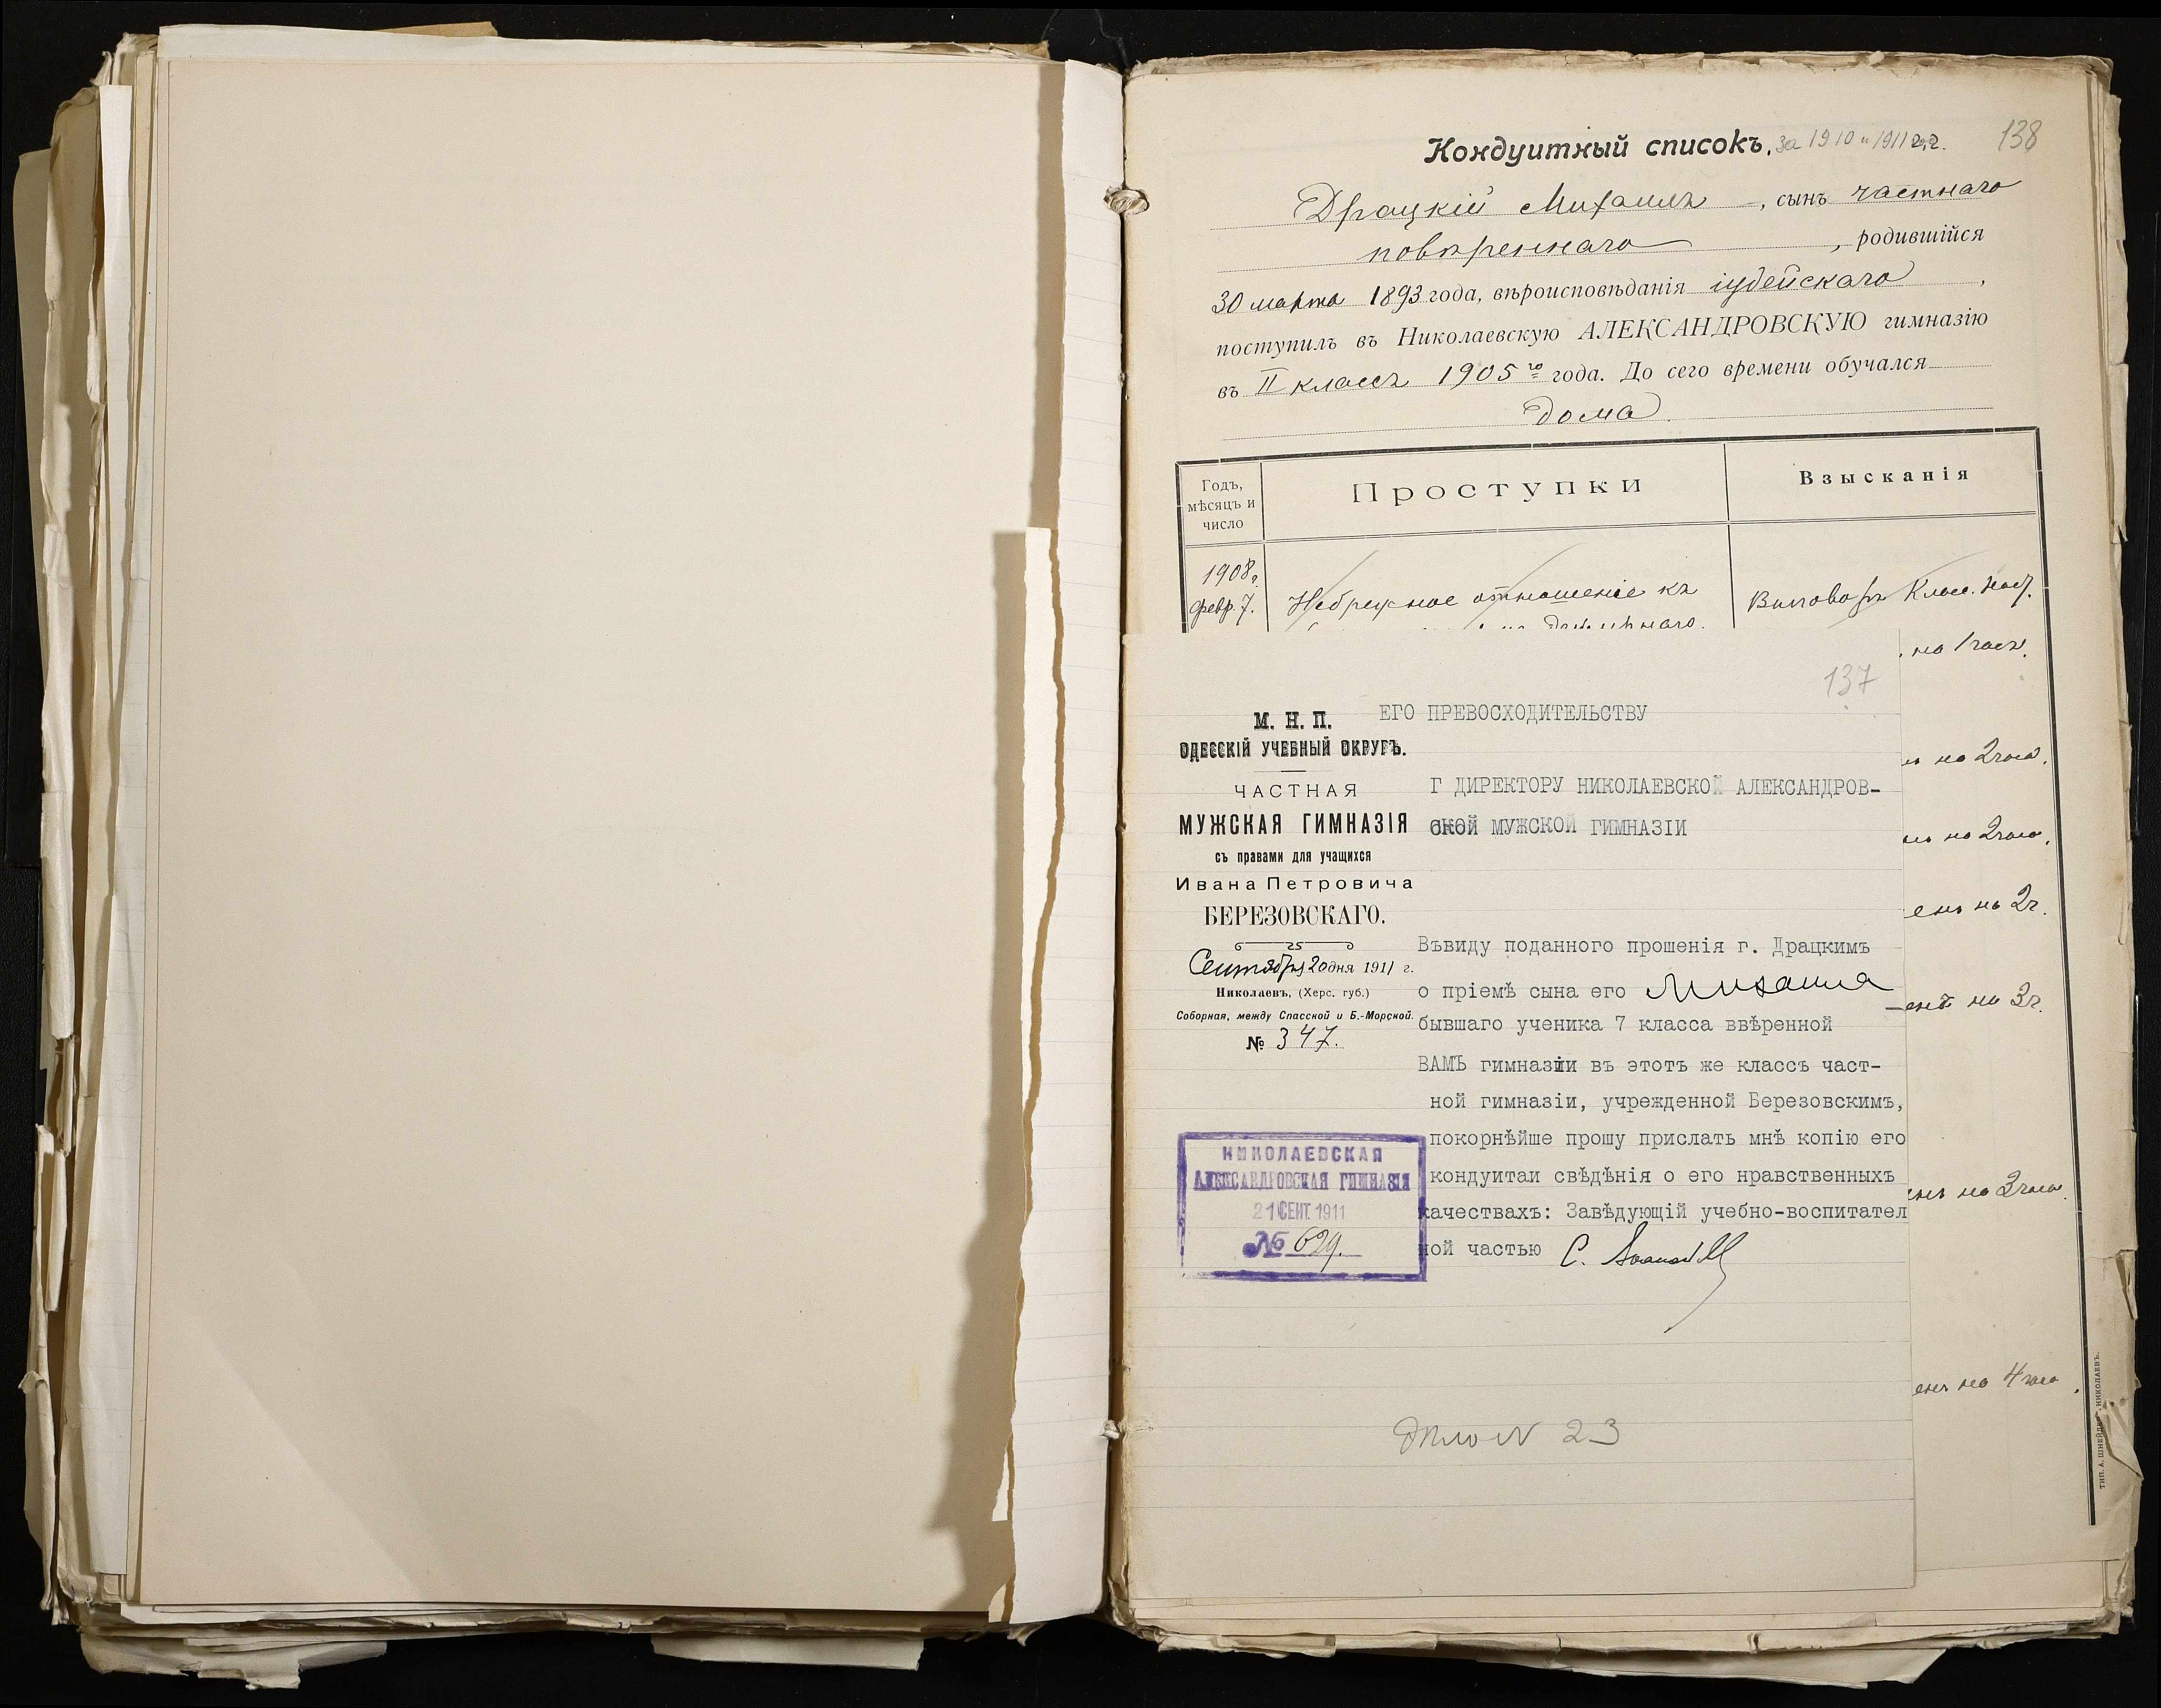 138
Кондуитный списокъ, за 1910 и 1911 г.г.
Драцкій Михаилъ, сынъ частнаго
повѣреннаго, родившійся
30 марта 1893 года, вѣроисповѣданія іудейскаго,
поступилъ въ Николаевскую АЛЕКСАНДРОВСКУЮ гимназію
въ II классъ 1905 го года. До сего времени обучался
дома.
Годъ, мѣсяцъ и число
Проступки
Взысканія
1908 г.
февр. 7.
Небрежное отношеніе къ
Выговоръ Класс. наст.
на 1 часъ.
на 2 часа.
на 2 часа.
на 2 ч.
на 3 ч.
на 3 часа.
на 4 часа.
ТИП. А. ШНЕЙДЕР НИКОЛАЕВЪ.
137
М. Н. П.
ОДЕССКІЙ УЧЕБНЫЙ ОКРУГЪ.
ЧАСТНАЯ
МУЖСКАЯ ГИМНАЗІЯ
съ правами для учащихся
Ивана Петровича
БЕРЕЗОВСКАГО.
Сентября 20 дня 1911 г.
Николаевъ, (Херс. губ.)
Соборная, между Спасской и Б.-Морской.
№ 347.
ЕГО ПРЕВОСХОДИТЕЛЬСТВУ
Г ДИРЕКТОРУ НИКОЛАЕВСКОЙ АЛЕКСАНДРОВ-
СКОЙ МУЖСКОЙ ГИМНАЗІИ
Въвиду поданного прошенія г. Драцкимъ
о пріемѣ сына его Михаила
бывшаго ученика 7 класса ввѣренной
ВАМЪ гимназіи въ этотъ же классъ част-
ной гимназіи, учрежденной Березовскимъ,
покорнѣйше прошу прислать мнѣ копію его
кондуитаи свѣдѣнія о его нравственныхъ
качествахъ: Завѣдующій учебно-воспитател
ной частью С.
НИКОЛАЕВСКАЯ
АЛЕКСАНДРОВСКАЯ ГИМНАЗІЯ
21 СЕНТ. 1911
№ 629.
дѣло N 23